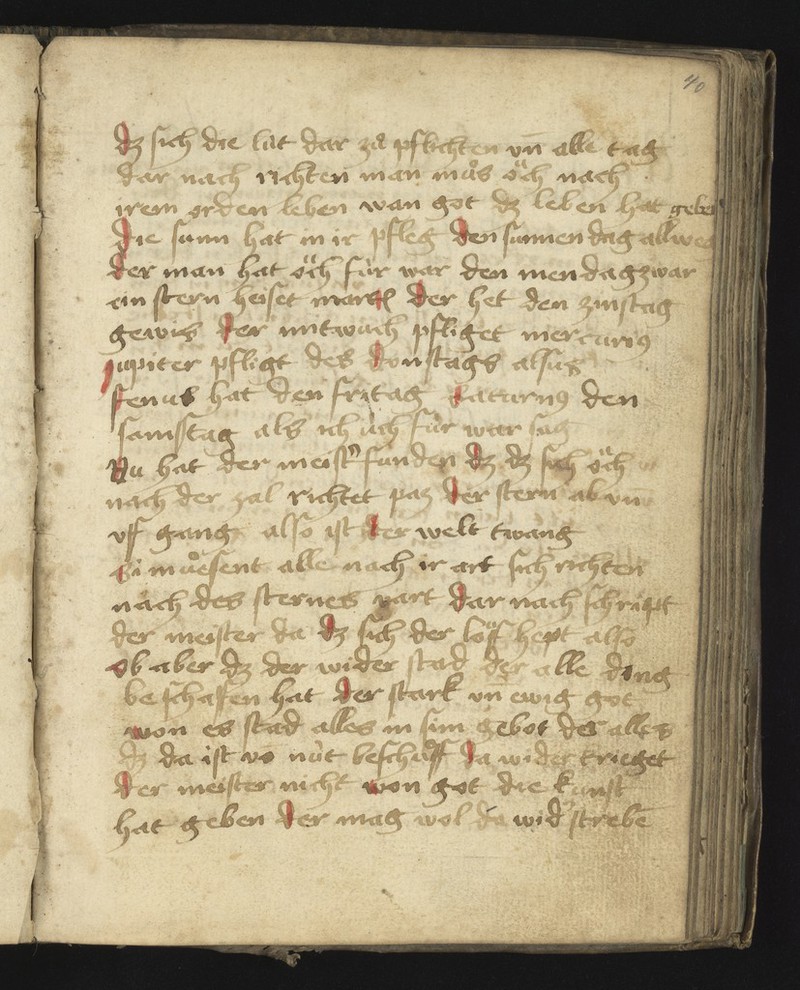 40
dz sich die lüt dar zů pflichten vn̄ alle tag
dar nach richten man můs öch nach
irem orden leben wan got dz leben hat gebe
die sunn hat in ir pfleg den sunnen dag allweg
der man hat öch für war den mendag zwar
ein stern heiset mars der het den zinstag
gewis der mitwuch pfliget mercuriꝯ
jupiter pfligt des donstags alsus
fenus hat den fritag saturnꝯ den
samstag als ich üch für war sag
Nu hat der meistʼ funden dz dz sich öch
nach der zal richtet paz der stern ab vn̄
vff gang also ist der welt twang
si můesent alle nach ir art sich richten
nach des sternes vart dar nach schript
der meister da dz sich der löff hept also
ob aber dz der wider stad der alle ding
beschafen hat der stark vn̄ ewig got
won es stad alles in sim gebot des alles
dz da ist vō nüt beschůff da wider krieget
der meister nicht won got die kunst
hat geben der mag wol da widʼ strebē